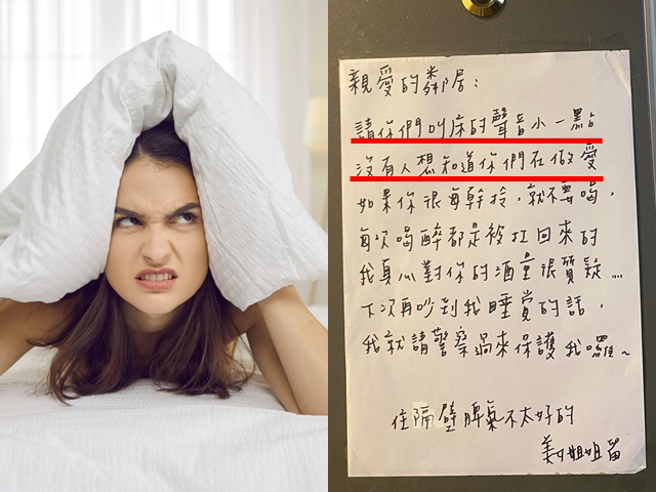 親愛的鄰居：
請你們叫床的聲音小一點
沒有人想知道你們在做愛
如果你很每幹拎，就不要喝，
每次喝醉都是被扛回來的
我身心對你的酒量很質疑....
下次再吵到我睡覺的話，
我就請警察過來保護我囉~
住隔壁脾氣不太好的
姐姐留